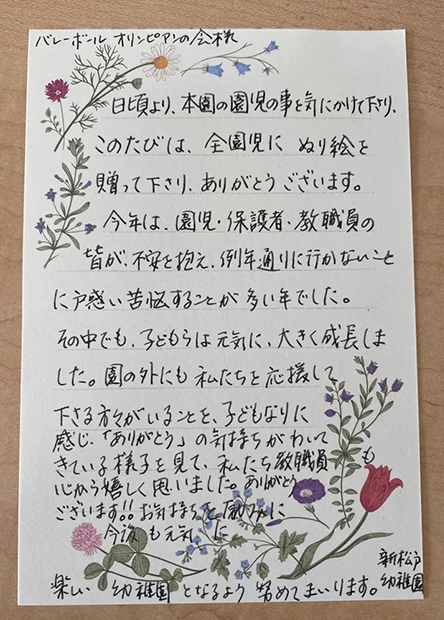 バレーボール オリンピアンの会様
日頃より、本園の園児の事を気にかけて下さり、
このたびは、全園児に ぬり絵を
贈って下さり、ありがとうございます。
今年は、園児・保護者・教職員の
皆が、不安を抱え、例年通りに行かないこと
に戸惑い苦悩することが多い年でした。
その中でも、子どもらは元気に、大きく成長しま
した。園の外にも私たちを応援して
下さる方々がいることを、子どもなりに
感じ、「ありがとう」の気持ちがわいて
きている様子を見て、私たち教職員も
心から嬉しく思いました。ありがとう
ございます!!お気持ちを励みに
今後も元気に
楽しい 幼稚園となるよう 努めてまいります。
新松戸
幼稚園